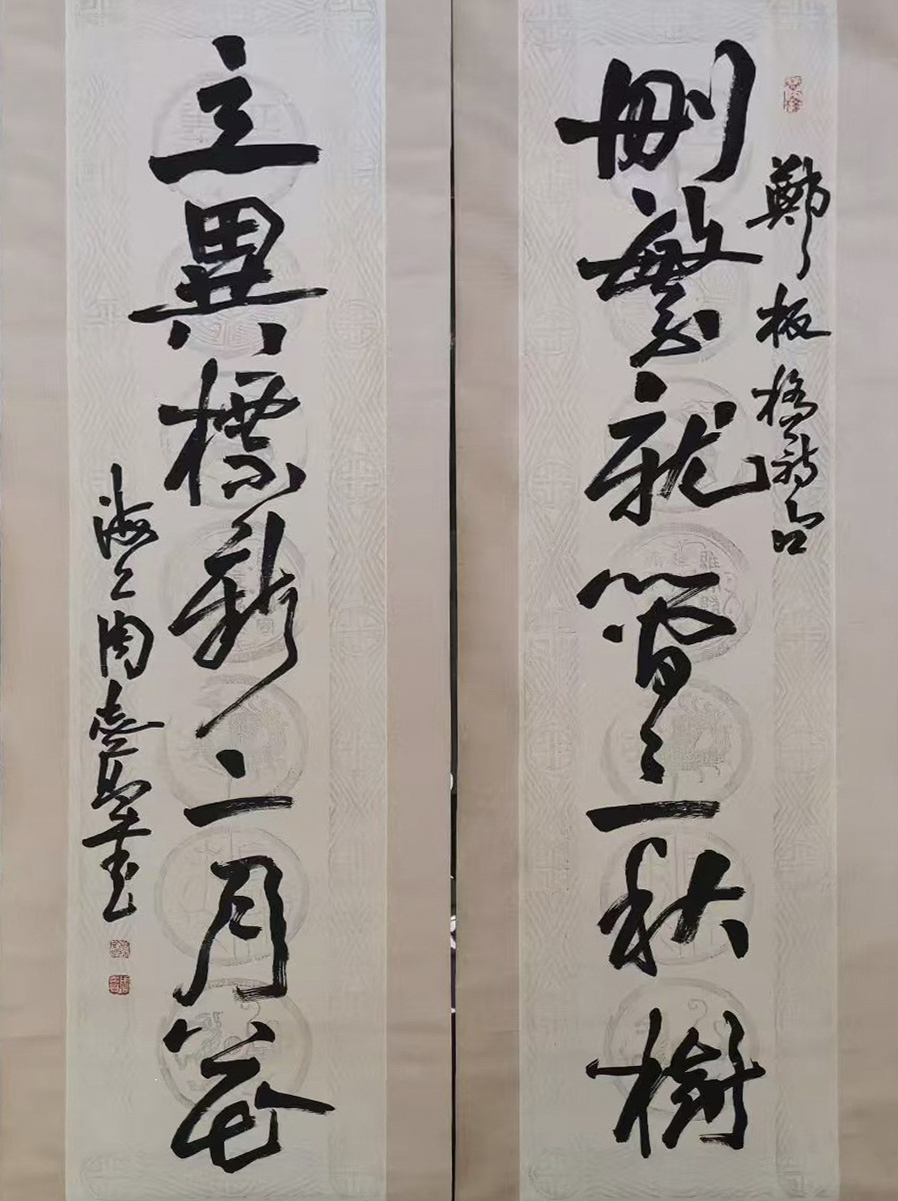 鄭板橋詩句
刪繁就簡三秋樹
立異標新二月花
海上周書